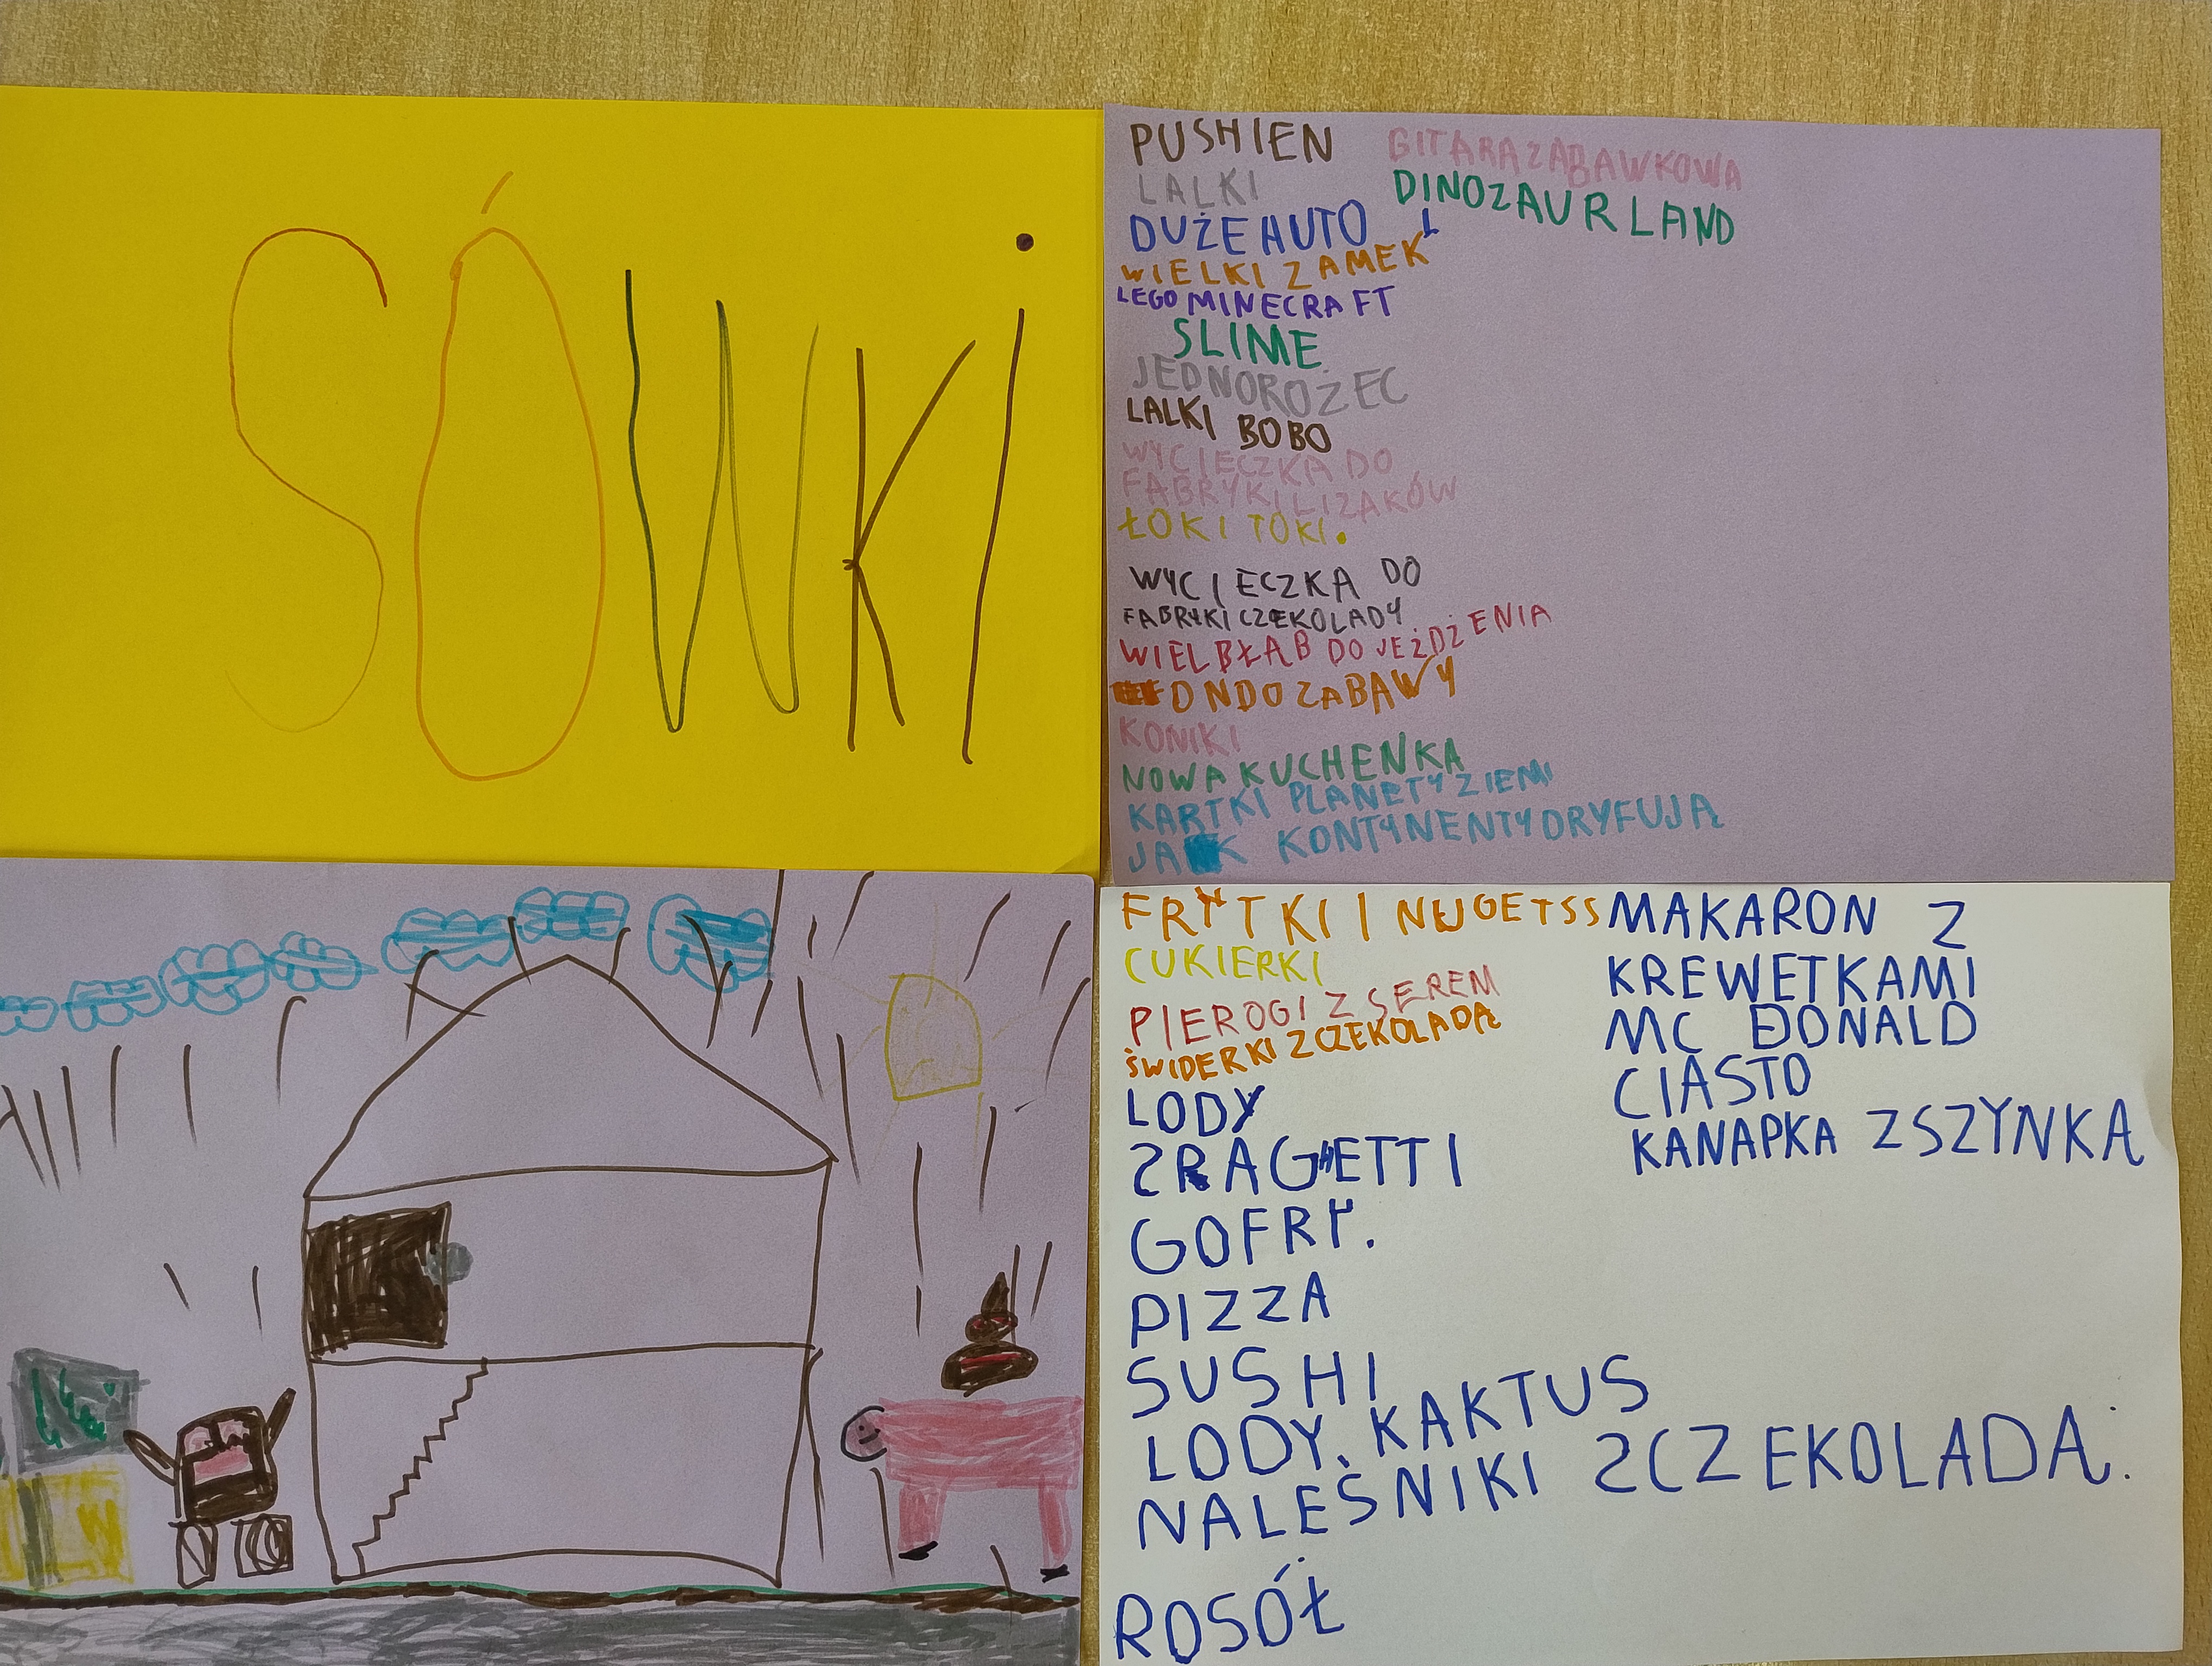 SÓWKi
PUSHIEN
LALKI
DUŻE AUTO
WIELKI ZAMEK
LEGO MINECRAFT
SLIME
JEDNOROŻEC
LALKI BOBO
WYCIECZKA DO
FABRYKI LIZAKÓW
ŁOKI TOKI.
WYCIECZKA DO
FABRYKI CZEKOLADY
WIELBŁĄB DO JEŻDŻENIA
DO ZABAWY
KONIKI
NOWA KUCHENKA
KARTKI PLANETY ZIEMI
JAK KONTYNENTY DRYFUJĄ
GITARA ZABAWKOWA
DINOZAUR LAND
FRYTKI I NUGETSS
CUKIERKI
PIEROGI Z SEREM
ŚWIDERKI Z CZEKOLADĄ
LODY
SPAGHETTI
GOFRY.
PIZZA
SUSHI
LODY KAKTUS
NALEŚNIKI Z CZEKOLADĄ.
ROSÓŁ
MAKARON Z
KREWETKAMI
MC DONALD
CIASTO
KANAPKA Z SZYNKĄ